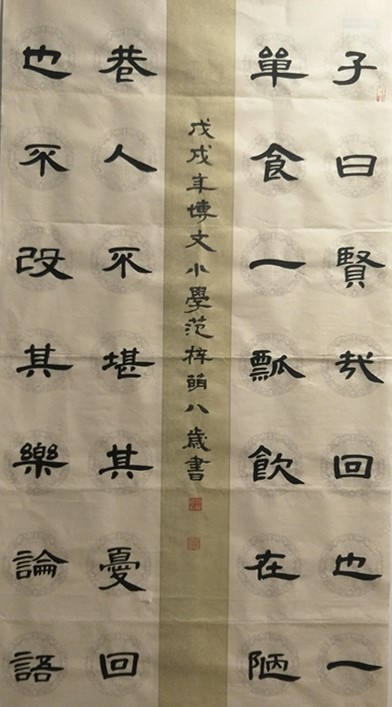 子曰賢哉回也一
單食一瓢飲在陋
巷人不堪其憂回
也不改其樂論語
戊戌年博文小學范梓萌八歲書